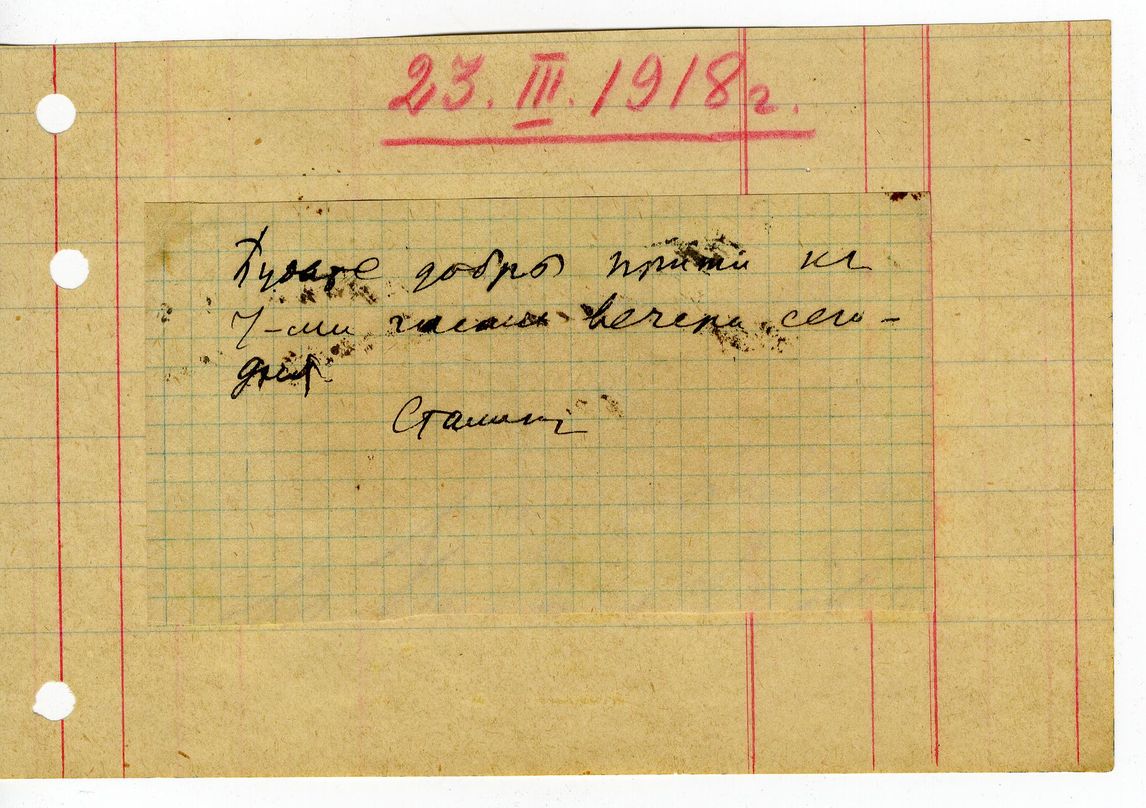 23.III.1918г.
Будьте добры прийти к
7-ми часам вечера сего-
дня
Сталин